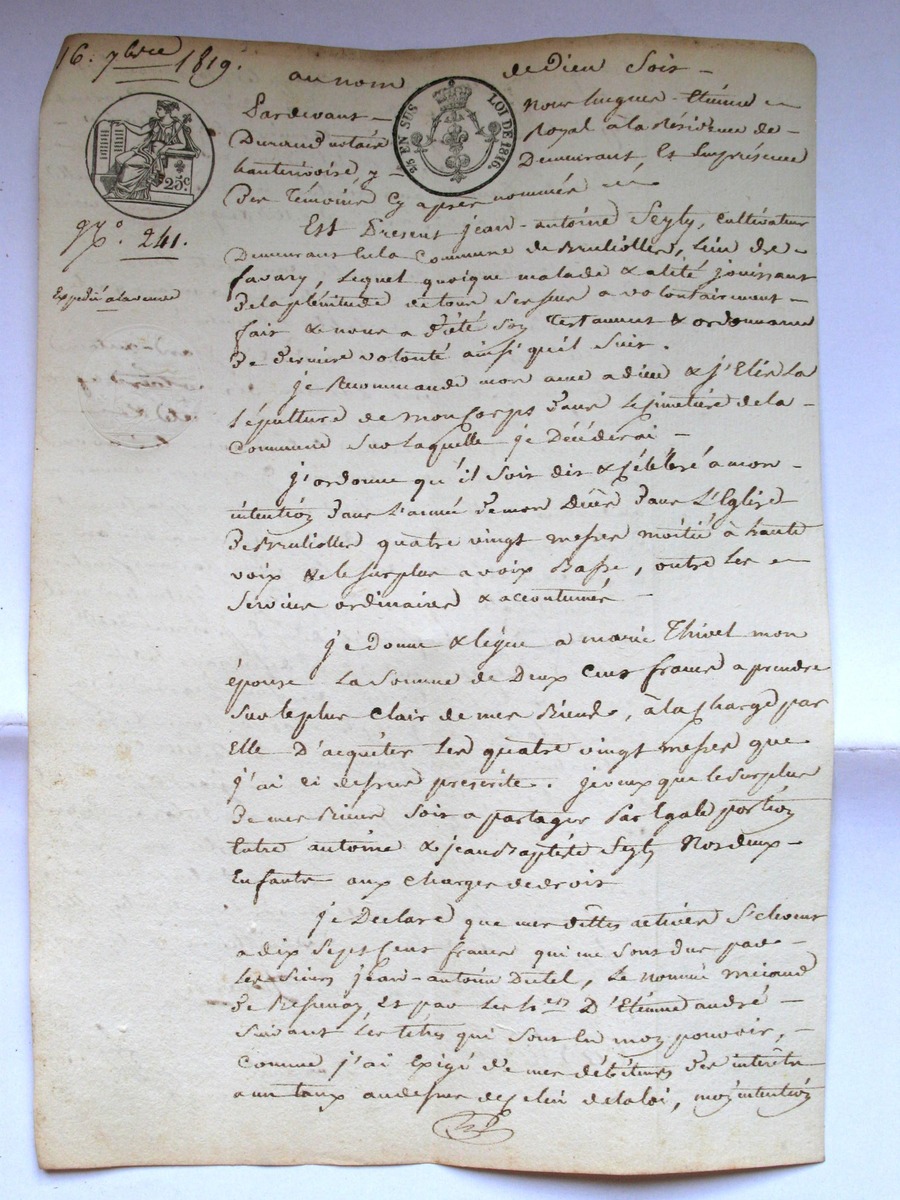 16. 7bre 1819.
au nom de Dieu Soit –
Pardevant – Nous hugues-Etienne
Durand notaire Royal à la Résidence de –
hauterivoire, y – Demeurant, Et En présence
Des Témoins Cy après nommés
25 EN SUS LOI DE 1816.
25c.
No. 241.
Expedié a la veuve
Est Présent jean-antoine Seyty, cultivateur
Demeurant En la Commune de Brulioller, Lieu de –
favary, Lequel quoique malade & alité jouissant
De la plénitude de tous Ses sens a volontairement –
fait & nous a dicté Son Testament & ordonnance
De Derniere volonté ainsi qu'il Suit.
je Recommande mon ame a dieu & j'Elis La
Sépulture de mon Corps Dans Le Cimetiére de la –
Commune Sur Laquelle je Décéderai –
j'ordonne qu'il Soit dit & Célébré a mon –
intention Dans L'année De mon Décès Dans L'Eglise
De Brulioller quatre vingt messes moitié à haute
voix & le Surplus a voix Basse, outre Les
Services ordinaires & accoutumés –
je Donne & légue a marie Thivel mon
épouse La Somme de Deux Cens francs a prendre
Sur le plus Clair de mes Biens, à la Charge par
Elle D'acquiter Les quatre vingt messes que
j'ai Ci dessus prescrite. je veux que le Surplus
De mes Biens Soit a partager Par Egale portion
Entre antoine & jean Baptiste Seyty Nos deux –
Enfants aux Charges de droit
je Déclare que mes dettes actives S'élevent
a dix Sept Cens francs qui me Sont dus par –
Les Sieurs jean-antoine Dutel, Le nommé
De Et par Les hers D'Etienne andré –
Suivant Les titres qui Sont En mon pouvoir, –
Comme j'ai Exigé de mes débiteurs Des intérêts
a un taux au dessus de Celui de la loi, mon intention